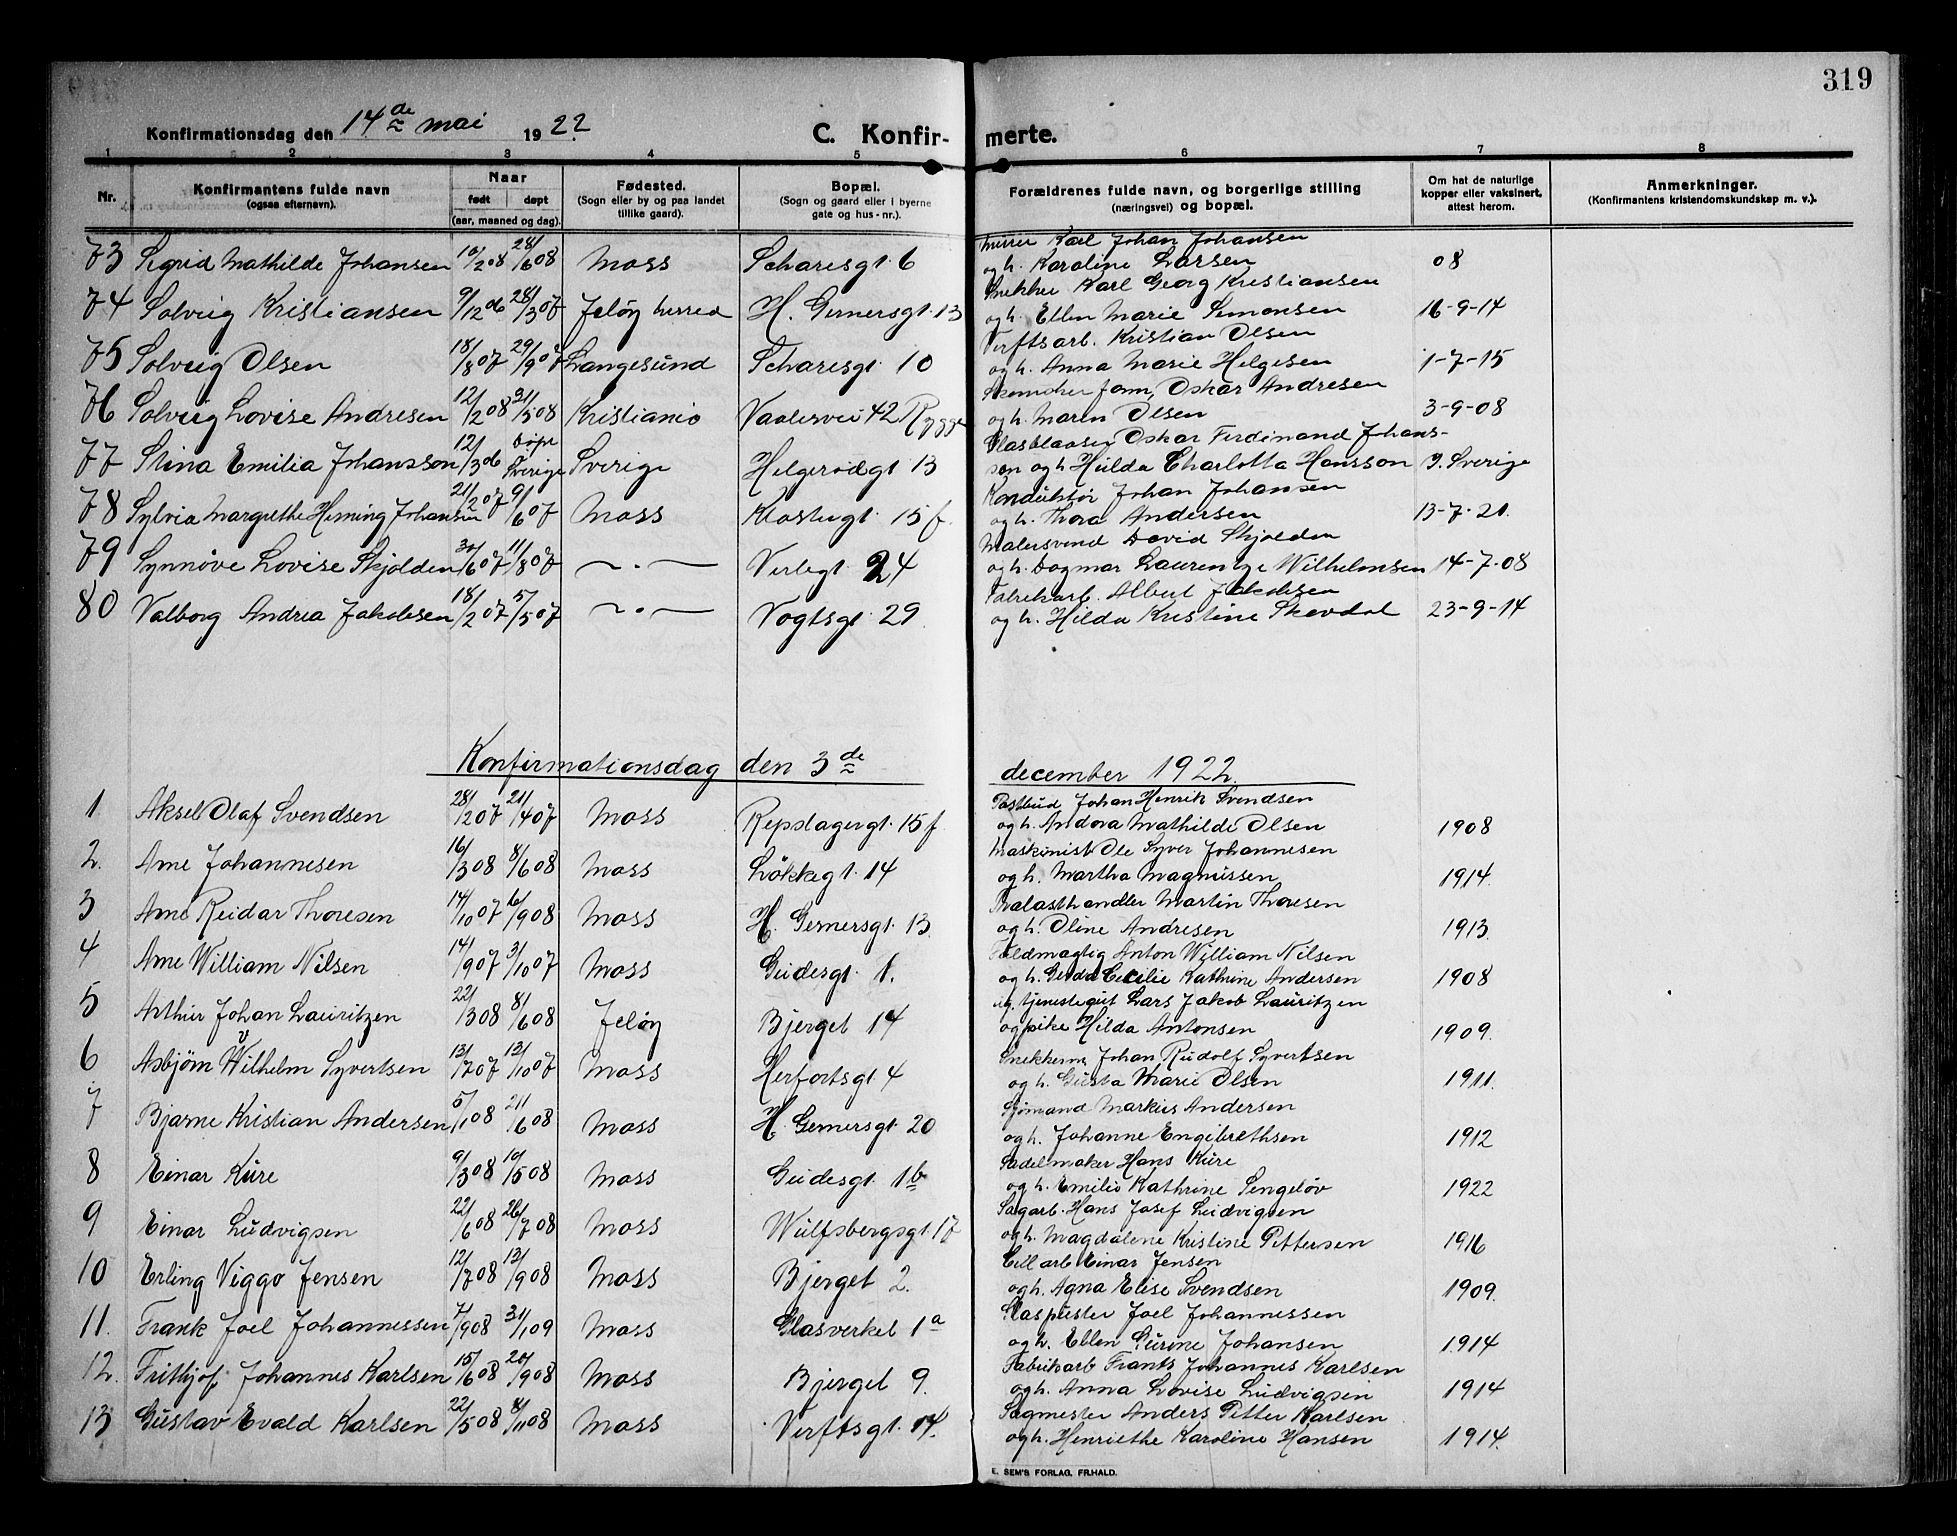 319
Konfirmationsdag den 14de mai 1922. C. Konfir- merte.
1 2 3 4 5 6 7 8
Nr. Konfirmantens fulde navn (ogsaa efternavn). Naar født døpt (aar, maaned og dag). Fødested. (Sogn eller by og paa landet tillike gaard). Bopæl. (Sogn og gaard eller i byerne gate og hus-nr.). Forældrenes fulde navn, og borgerlige stilling (næringsvei) og bopæl. Om hat de naturlige kopper eller vaksinert, attest herom. Anmerkninger. (Konfirmantens kristendomskundskap m. v.).
Murer Karl Johan Johansen
73 Sigrid Mathilde Johansen 10/2 08 28/6 08 Moss Scharesgt. 6 og h. Karoline Larsen 08
Snekker Karl Georg Kristiansen
74 Solveig Kristiansen 9/12 06 28/3 07 Jeløy herred H. Gernersgt. 13 og h. Ellen Marie Simonsen 16-9-14
Verftsarb. Kristian Olsen
75 Solveig Olsen 18/8 07 29/9 07 Langesund Scharesgt. 10 og h. Anna Marie Helgesen 1-7-15
Skomaker form, Oskar Andresen
76 Solveig Lovise Andresen 12/2 08 31/5 08 Kristiania Vaalervei 42 Rygge og h. Maren Olsen 3-9-08
Glasblaaser Oskar Ferdinand Johans-
77 Stina Emilia Johansson 12/3 06 Døpt Sverige Sverige Helgerødgt 13 son og h. Hulda Charlotta Hansson I. Sverige
Konduktør Johan Johansen
78 Sylvia Margrethe Heming Johansen 21/2 07 9/6 07 Moss Klostergt. 15 f. og h. Thora Andersen 13-7-21.
Malersvend David Skjolden
79 Synnøve Lovise Skjolden 30/6 07 11/8 07 — . — Verlegt. 24 og h. Dagmar Laurentze Wilhelmsen 14-7-08
Fabrikarb. Albert Jakobsen
80 Valborg Andrea Jakobsen 18/2 07 5/5 07 — . — Vogtsgt. 29 og h. Hilda Kristine Skovdal 23-9-14
Konfirmationsdag den 3de december 1922.
Postbud Johan Henrik Svendsen
1 Aksel Olaf Svendsen 28/2 07 21/4 07 Moss Repslagergt. 15 f. og h. Andora Mathilde Olsen 1908
Maskinist Ole Syver Johannesen
2. Arne Johannesen 16/3 08 8/6 08 Moss Løkkegt. 14 og h. Martha Magnussen 1914.
Balasthandler Martin Thoresen
3 Arne Reidar Thoresen 14/10 07 6/9 08 Moss H. Gernersgt. 13. og h. Oline Andresen 1913.
Fuldmægtig Anton William Nilsen
4 Arne William Nilsen 14/9 07 3/10 07 Moss Gudesgt. 1. og h. Gerda Cecilie Kathrine Andersen 1908
ug. tjenestegut Lars Jakob Lauritzen
5 Arthur Johan Lauritzen 22/3 08 8/6 08 Jeløy Bjerget 14 og pike Hilda Antonsen 1909.
Snekkerm. Johan Rudolf Syvertsen
6 Asbjørn Vilhelm Syvertsen 13/7 07 13/10 07 Moss Herfortsgt 4 og h. Gusta Marie Olsen 1911.
Sjømand Markus Andersen
7 Bjarne Kristian Andersen 5/1 08 21/6 08 Moss H. Gernersgt. 20 og h. Johanne Engibrethsen 1912
Sadelmaker Hans Kure
8 Einar Kure 9/3 08 10/5 08 Moss Gudesgt. 1b og h. Emilie Kathrine Sengeløv 1922
Sagarb. Hans Josef Ludvigsen
9 Einar Ludvigsen 22/6 08 26/7 08 Moss Wulfsbergsgt 17 og h. Magdalene Kristine Pettersen 1916
Cell arb Einar Jensen
10 Erling Viggo Jensen 12/7 08 13/9 08 Moss Bjerget 2. og h. Agna Elise Svendsen 1909.
Glaspuster Joel Johannessen
11. Frank Joel Johannessen 7/9 08 31/1 09 Moss Glasverket 1a og h. Ellen Gurine Johansen 1914
Fabrikarb Frants Johannes Karlsen
12. Frithjof Johannes Karlsen 15/6 08 20/9 08 Moss Bjerget 9. og h. Anna Lovise Ludvigsen 1914
Sagmester Anders Petter Karlsen
13 Gustav Evald Karlsen 22/5 08 8/11 08 Moss Verftsgt. 14. og h. Henriethe Karoline Hansen 1914.
E. SEM'S FORLAG, FR.HALD.